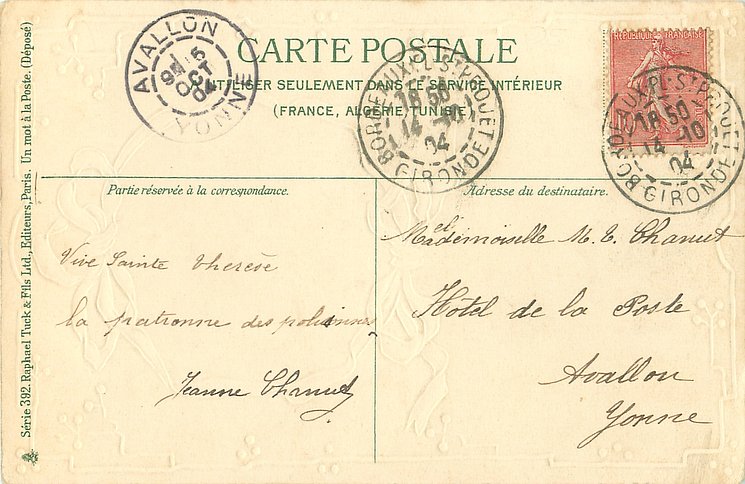 CARTE POSTALE
À UTILISER SEULEMENT DANS LE SERVICE INTÉRIEUR
(FRANCE, ALGÉRIE, TUNISIE)
AVALLON
15
OCT
04
YONNE
BORDEAUX PL. ST PROJET
18 50
14 - 10
04
GIRONDE
REPUBLIQUE FRANÇAISE
BORDEAUX PL. ST PROJET
18 50
14 - 10
04
GIRONDE
Série 392. Raphael Tuck & Fils Ltd., Editeurs, Paris. Un mot à la Poste. (Déposé)
Partie réservée à la correspondance.
Vive Sainte Therèse
la patronne des
Jeanne Chanut
Adresse du destinataire.
Mademoiselle M. E. Chanut
Hôtel de la Poste
Avallon
Yonne